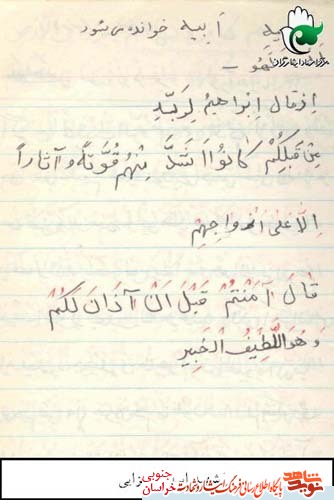 اَبیهِ خوانده می شود
اِذقال اِبْراهیمُ لِرَبِّهِ
مِنْ قَبْلِکُمْ کانُوا اَشَدَّ مِنْهُمْ قُوَّتهً وَ آثاراً
اِلّا عَلیٰ اَزْواجِهِمْ
قالَ آمَنْتُمْ قَبْلَ اَنْ آذَانَ لَکُمْ
وَ هُوَ اللَّطیفُ الْخَبیر
نوید شاهد پایگاه اطلاع رسانی فرهنگ ایثار و شهادت
خراسان جنوبی